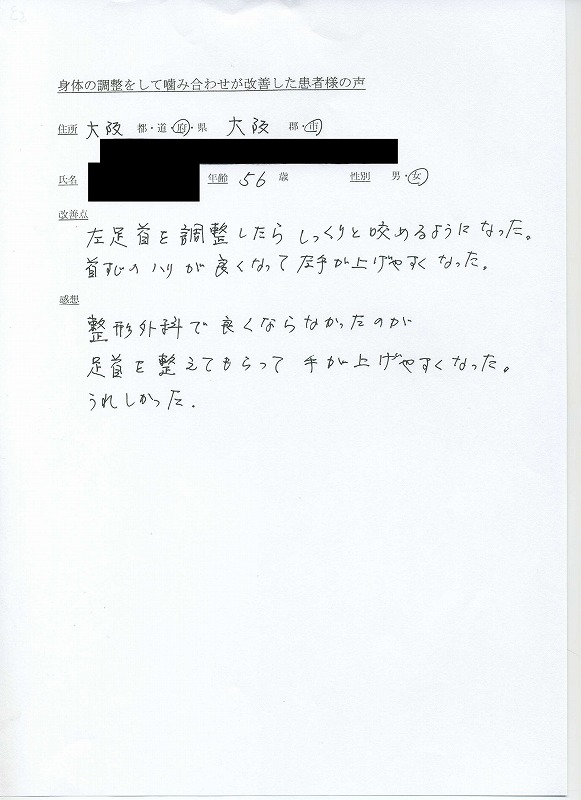 身体の調整をして噛み合わせが改善した患者様の声
住所 大阪 都・道・府・県 大阪 郡・市
氏名 年齢 56 歳 性別 男・女
改善点
左足首を調整したら しっくりと咬めるようになった。
首すじのハリが良くなって左手が上げやすくなった。
感想
整形外科で良くならなかったのが
足首を整えてもらって 手が上げやすくなった。
うれしかった.